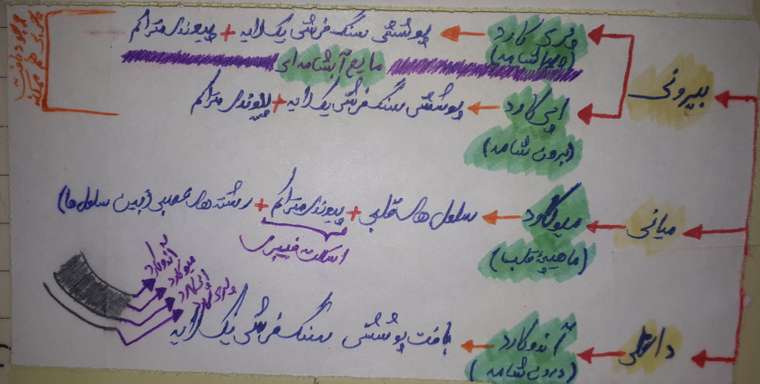 پری کارد ← پوششی سنگفرشی یک لایه + پیوندی متراکم
(پیراشامه)
مایع آبشامه ای
بیرونی
اپی کارد ← پوششی سنگفرشی یک لایه + پیوندی متراکم
(برون شامه)
میانی ← میوکارد ← سلول های قلبی + پیوندی متراکم + رشته های عصبی (بین سلول ها)
(ماهیچه قلب)
اسکلت فیبری
آندوکارد
میوکارد
اپی کارد
پری کارد
داخلی ← آندوکارد ← بافت پوششی سنگفرشی یک لایه
(درون شامه)